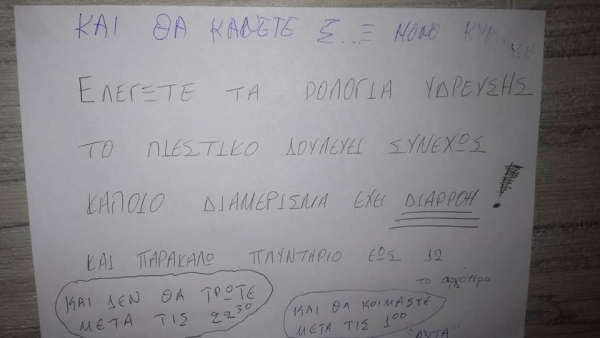 ΚΑΙ ΘΑ ΚΑΝΕΤΕ Σ...Ξ ΜΟΝΟ
ΕΛΕΓΞΤΕ ΤΑ ΡΟΛΟΓΙΑ ΥΔΡΕΥΣΗΣ
ΤΟ ΠΙΕΣΤΙΚΟ ΔΟΥΛΕΥΕΙ ΣΥΝΕΧΩΣ
ΚΑΠΟΙΟ ΔΙΑΜΕΡΙΣΜΑ ΕΧΕΙ ΔΙΑΡΡΟΗ!
ΚΑΙ ΠΑΡΑΚΑΛΩ ΠΛΥΝΤΗΡΙΟ ΕΩΣ 12
το αργότερο
ΚΑΙ ΔΕΝ ΘΑ ΤΡΩΤΕ
ΜΕΤΑ ΤΙΣ 22³⁰
ΚΑΙ ΘΑ ΚΟΙΜΑΣΤΕ
ΜΕΤΑ ΤΙΣ 1⁰⁰
"ΑΥΤΑ"